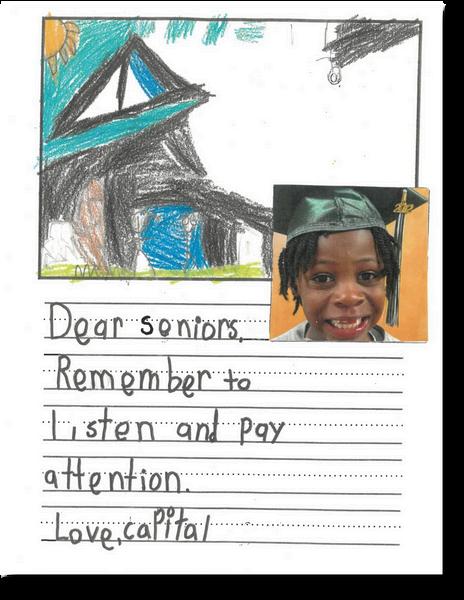 Dear seniors.
Remember to
Listen and pay
attention.
Love, capital